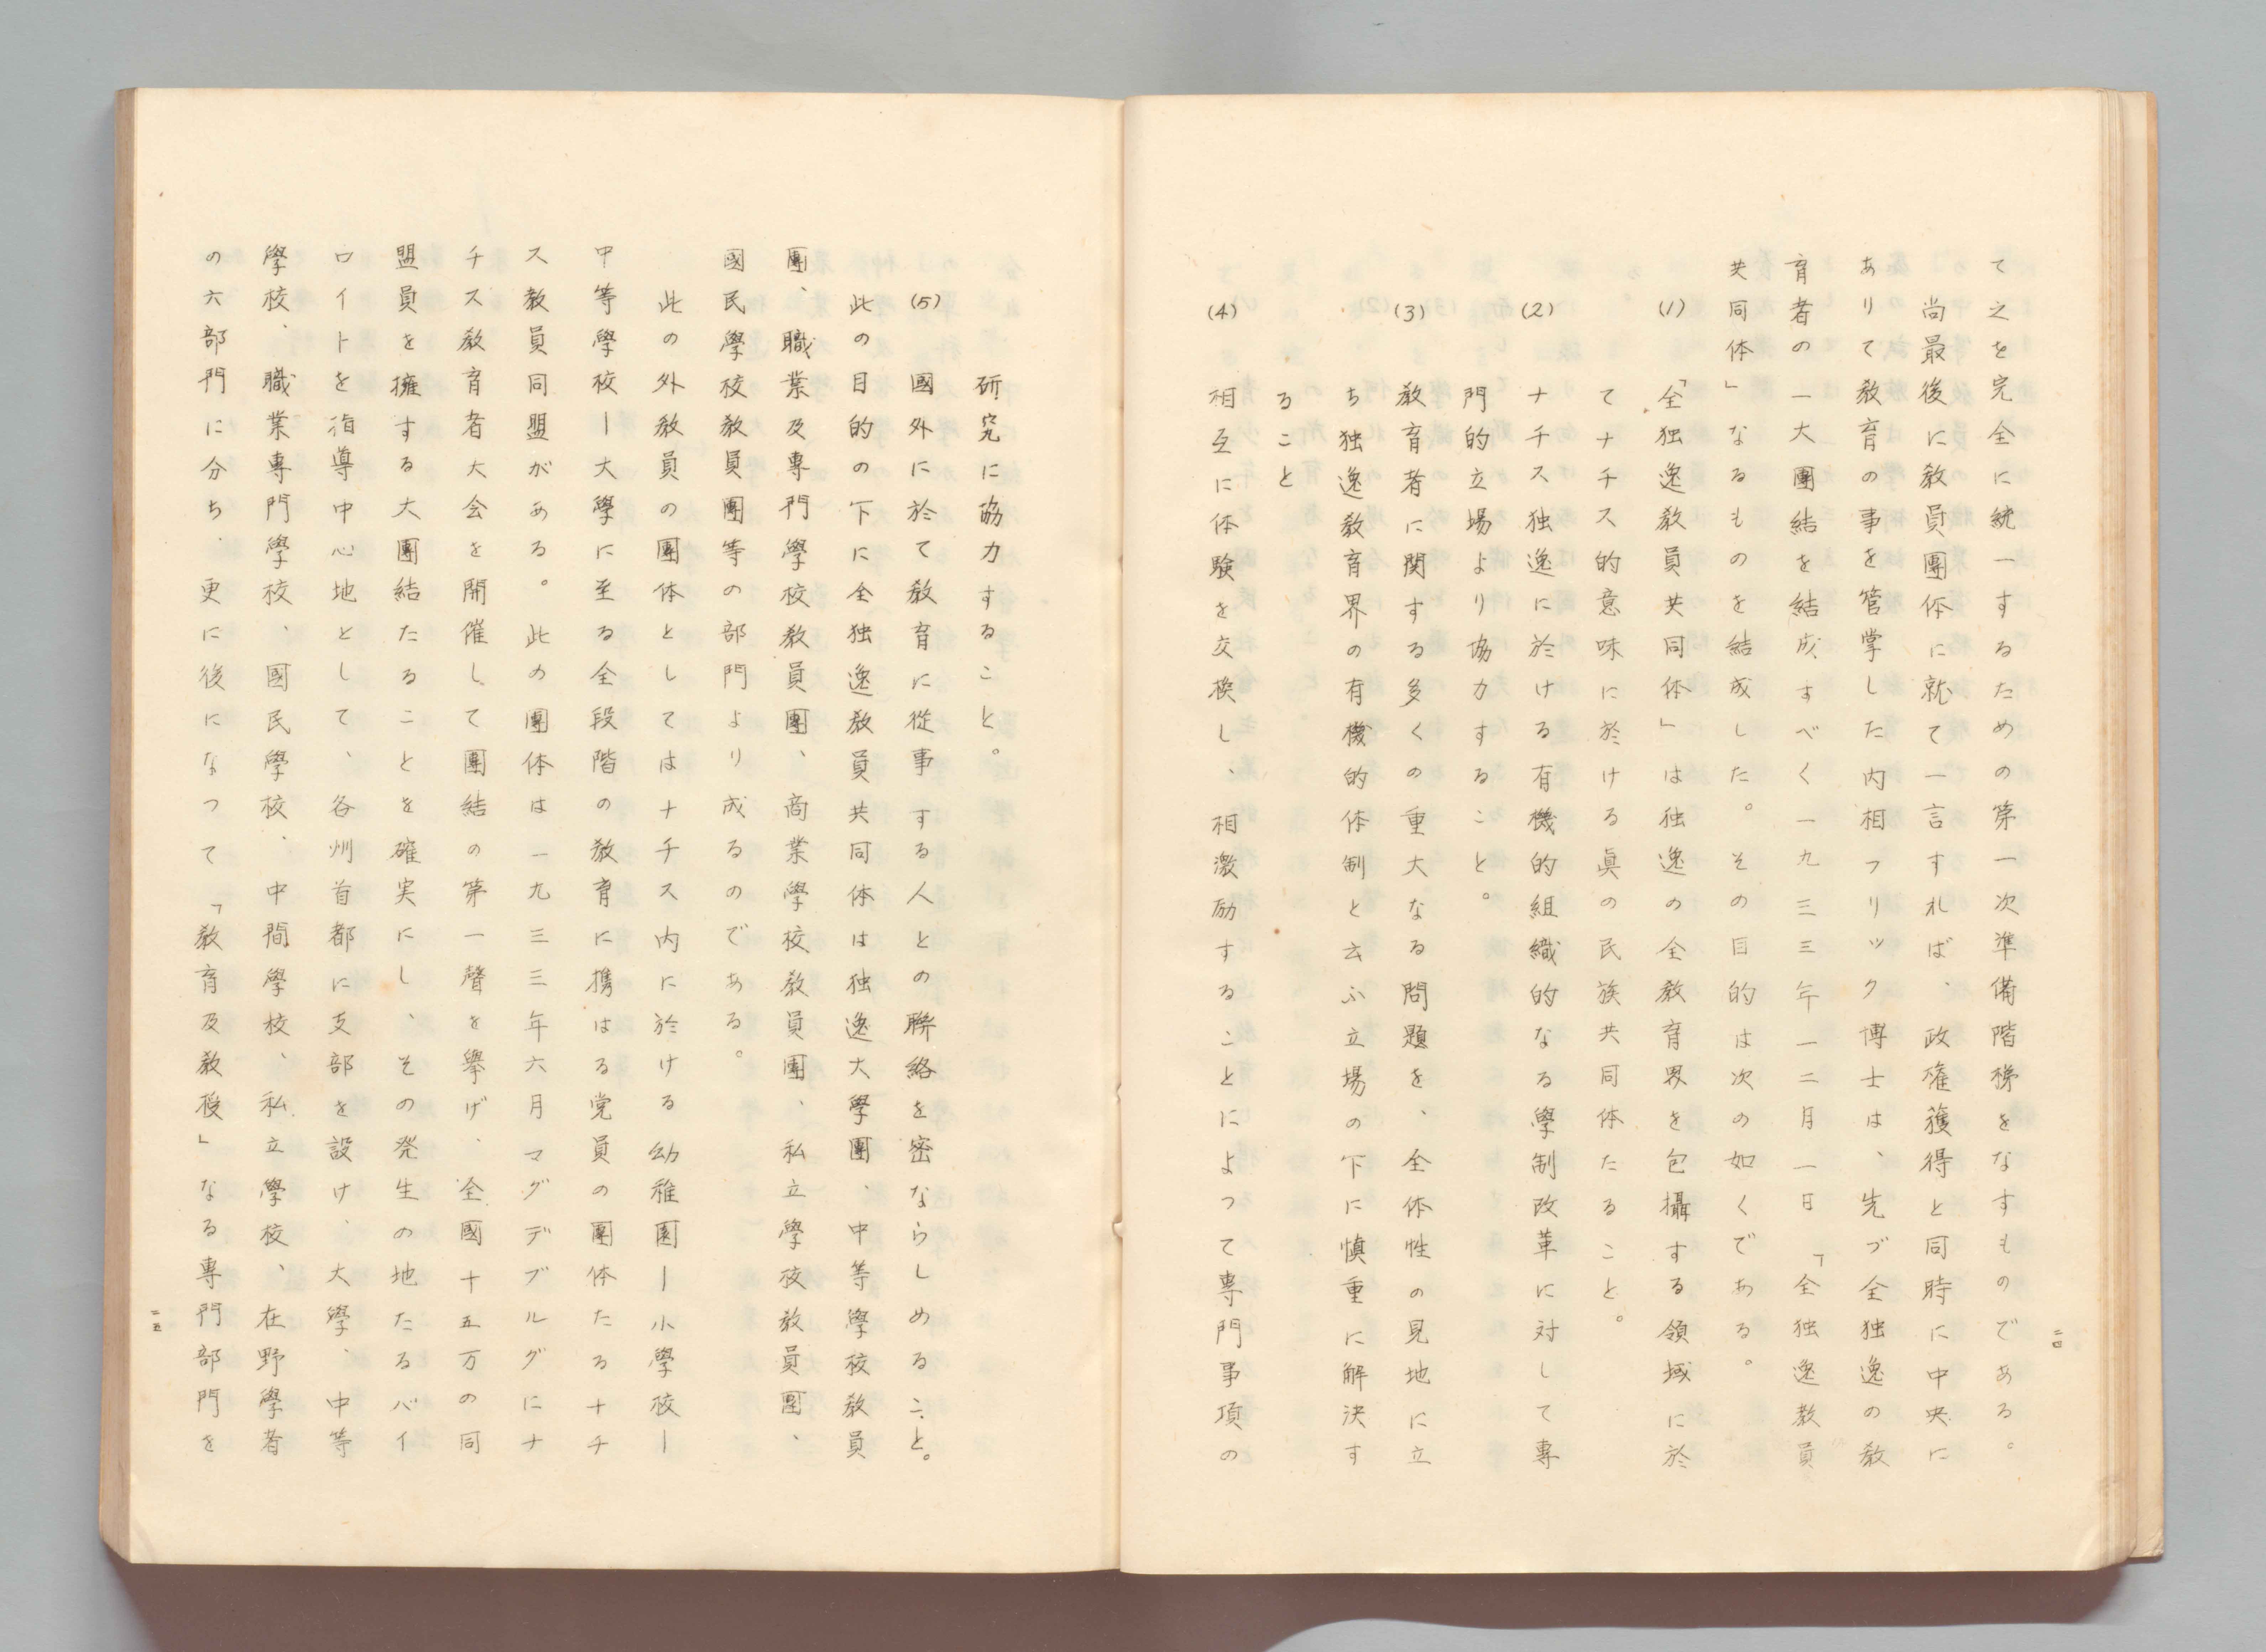 て之を完全に統一するための第一次準備階梯をなすものである。
尚最後に教員團体に就て一言すれば、政権獲得と同時に中央に
ありて教育の事を管掌した内相フリック博士は、先づ全独逸の教
育者の一大團結を結成すべく一九三三年一二月一日「全独逸教員
共同体」なるものを結成した。その目的は次の如くである。
(1)「全独逸教員共同体」は独逸の全教育界を包攝する領域に於
てナチス的意味に於ける眞の民族共同体たること。
(2) ナチス独逸に於ける有機的組織的なる學制改革に対して專
門的立場より協力すること。
(3) 教育者に関する多くの重大なる問題を、全体性の見地に立
ち独逸教育界の有機的体制と云ふ立場の下に慎重に解決す
ること
(4) 相互に体験を交換し、相激励することによつて專門事項の
二四
研究に協力すること。
(5) 國外に於て教育に從事する人との聯絡を密ならしめること。
此の目的の下に全独逸教員共同体は独逸大學團、中等學校教員
團、職業及專門學校教員團、商業學校教員團、私立學校教員團、
國民學校教員團等の部門より成るのである。
此の外教員の團体としてはナチス内に於ける幼稚園ー小學校ー
中等學校ー大學に至る全段階の教育に携はる党員の團体たるナチ
ス教員同盟がある。此の團体は一九三三年六月マグデブルグにナ
チス教育者大会を開催して團結の第一聲を擧げ、全國十五万の同
盟員を擁する大團結たることを確実にし、その発生の地たるバイ
ロイトを指導中心地として、各州首都に支部を設け、大學、中等
學校、職業專門學校、國民學校、中間學校、私立學校、在野學者
の六部門に分ち、更に後になつて「教育及教授」なる專門部門を
二五